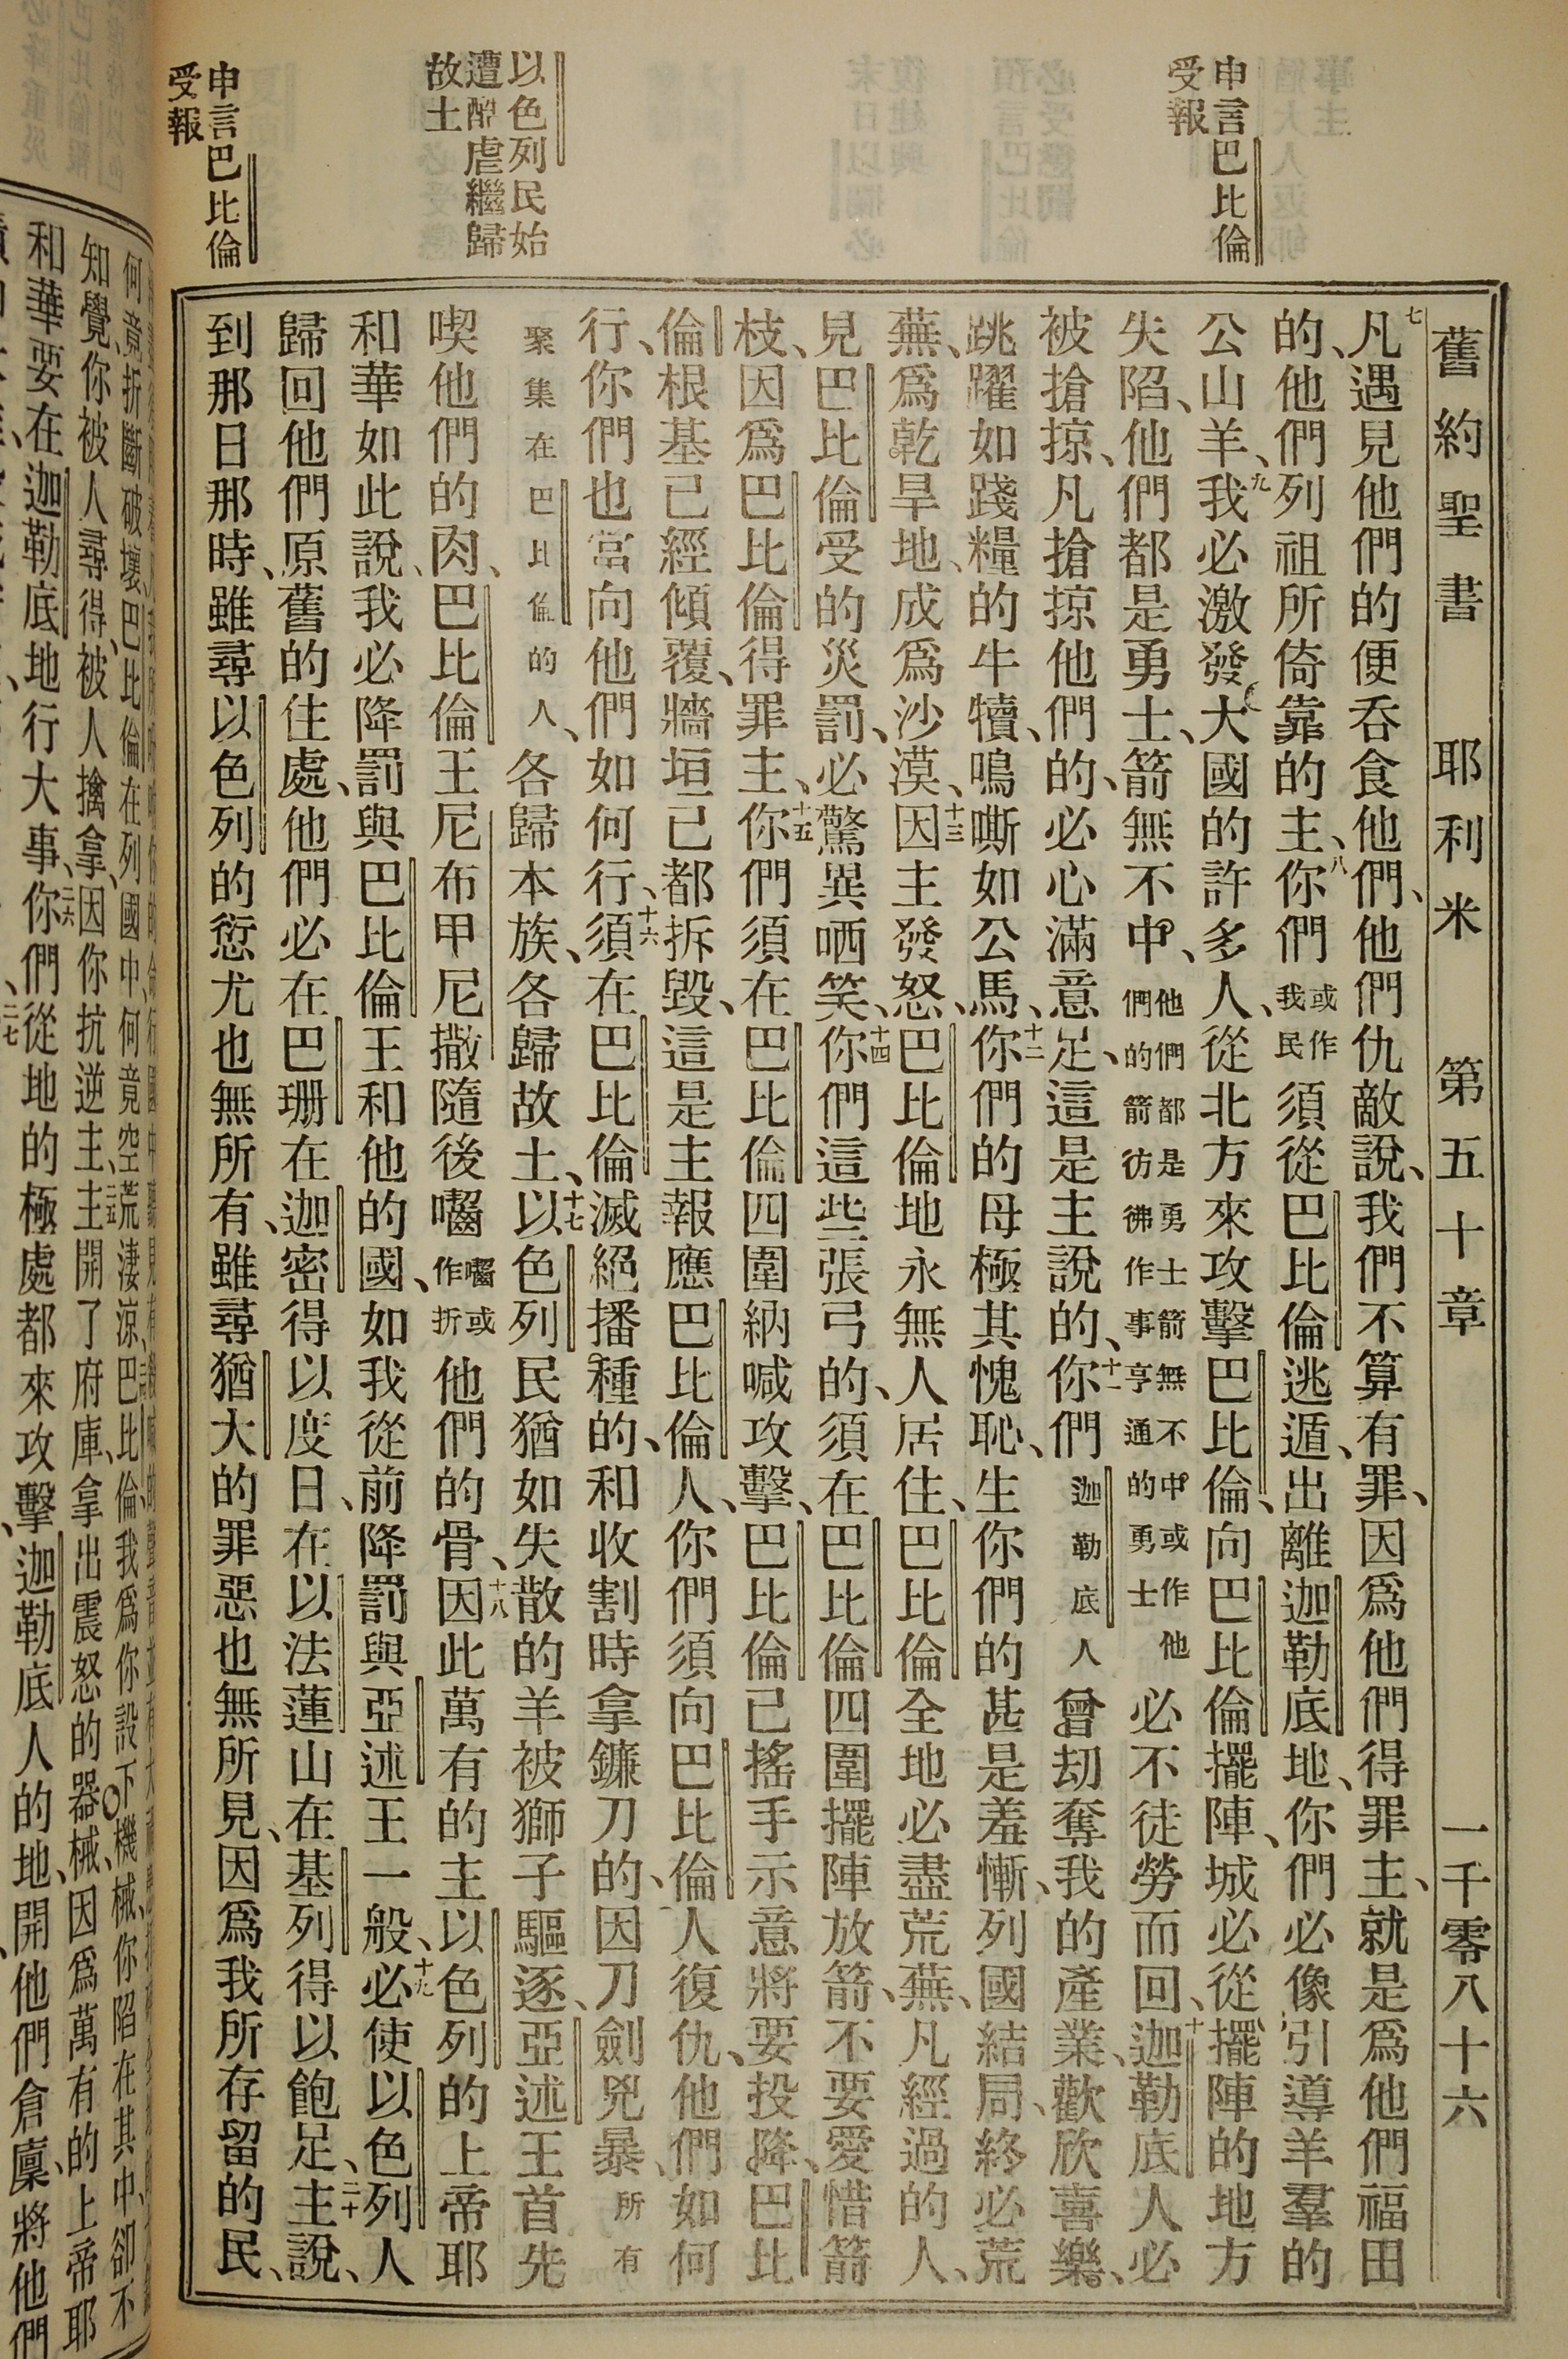 申言巴比倫
受報
以色列民始
遭酷虐繼歸
故土
申言巴比倫
受報
舊約聖書 耶利米 第五十章 一千零八十六
七凡遇見他們的便吞食他們、他們仇敵說、我們不算有罪、因爲他們得罪主、就是爲他們福田
的、他們列祖所倚靠的主、八你們或作我民須從巴比倫逃遁、出離迦勒底地、你們必像引導羊羣的
公山羊、九我必激發大國的許多人、從北方來攻擊巴比倫、向巴比倫擺陣、城必從擺陣的地方
失陷、他們都是勇士、箭無不中、他們都是勇士箭無不中或作他們的箭彷彿作事亨通的勇士他必不徒勞而回、十迦勒底人必
被搶掠、凡搶掠他們的、必心滿意足、這是主說的、十一你們迦勒底人曾刧奪我的產業、歡欣喜樂、
跳躍如踐糧的牛犢、鳴嘶如公馬、十二你們的母極其愧恥、生你們的甚是羞慚、列國結局、終必荒
蕪、爲乾旱地、成爲沙漠、十三因主發怒、巴比倫地永無人居住、巴比倫全地必盡荒蕪、凡經過的人、
見巴比倫受的災罰、必驚異哂笑、十四你們這些張弓的、須在巴比倫四圍擺陣放箭、不要愛惜箭
枝、因爲巴比倫得罪主、十五你們須在巴比倫四圍吶喊攻擊、巴比倫已搖手示意將要投降、巴比
倫根基已經傾覆、牆垣已都拆毀、這是主報應巴比倫人、你們須向巴比倫人復仇、他們如何
行、你們也當向他們如何行、十六須在巴比倫滅絕播種的、和收割時拿鐮刀的、因刀劍兇暴、所有
聚集在巴比倫的人、各歸本族、各歸故土、十七以色列民猶如失散的羊被獅子驅逐、亞述王首先
喫他們的肉、巴比倫王尼布甲尼撒隨後囓囓或作折他們的骨、十八因此萬有的主以色列的上帝耶
和華如此說、我必降罰與巴比倫王和他的國、如我從前降罰與亞述王一般、十九必使以色列人
歸回他們原舊的住處、他們必在巴珊在迦密得以度日、在以法蓮山在基列得以飽足、二十主說、
到那日那時、雖尋以色列的愆尤也無所有、雖尋猶大的罪惡也無所見、因爲我所存留的民、
何竟折斷破壞、巴比倫在列國中、何竟空荒淒涼、巴比倫我爲你設下機械、你陷在其中、卻不
知覺、你被人尋得、被人擒拿、因你抗逆主、二五主開了府庫、拿出震怒的器械、因爲萬有的上帝耶
和華要在迦勒底地行大事、二六你們從地的極處都來攻擊、迦勒底人的地、開他們倉廩、將他們